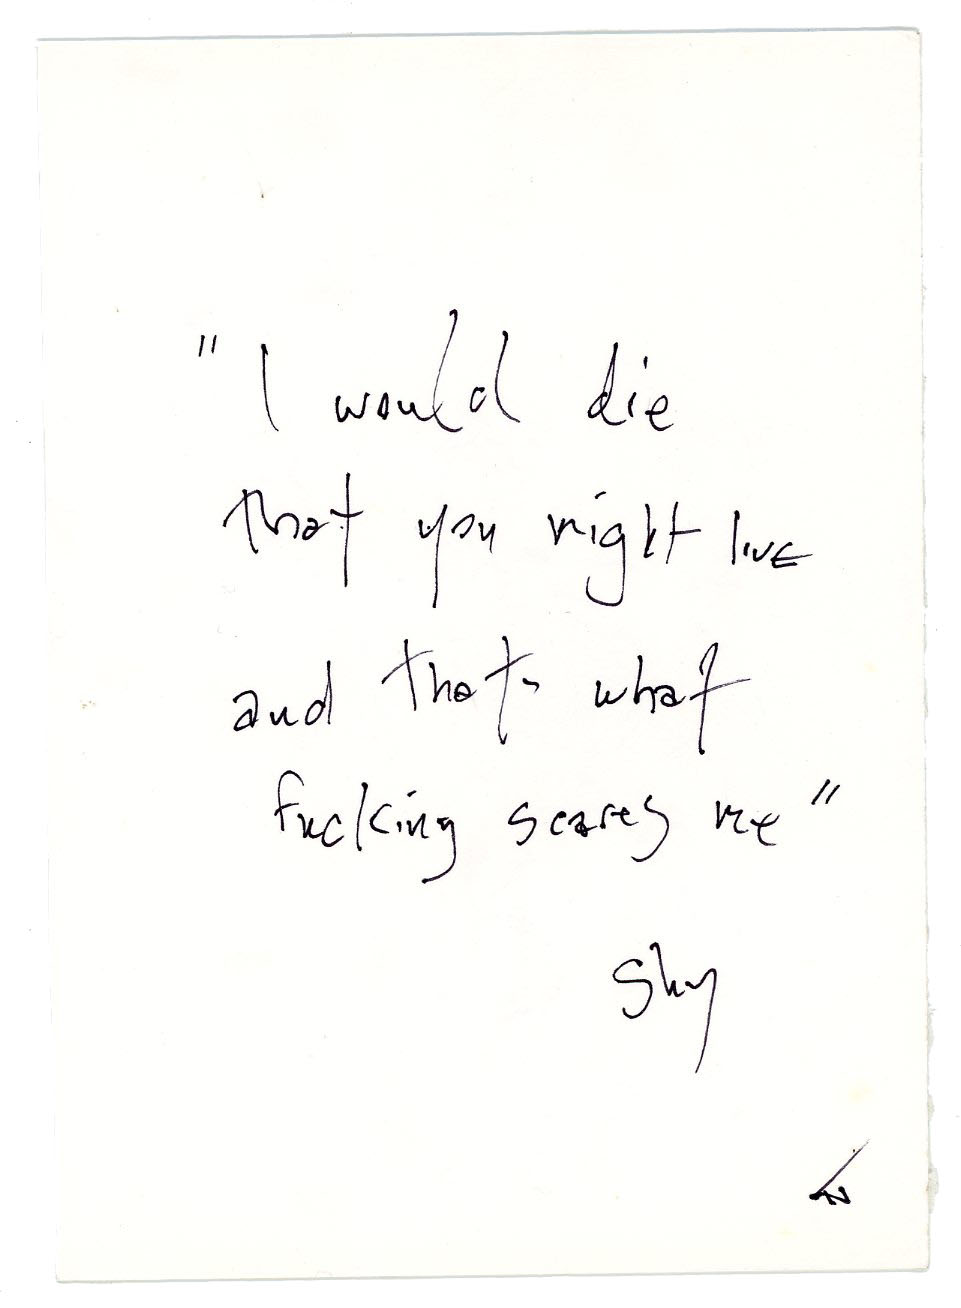 "I would die
that you might live
and thats what
fucking scares me"
Shy